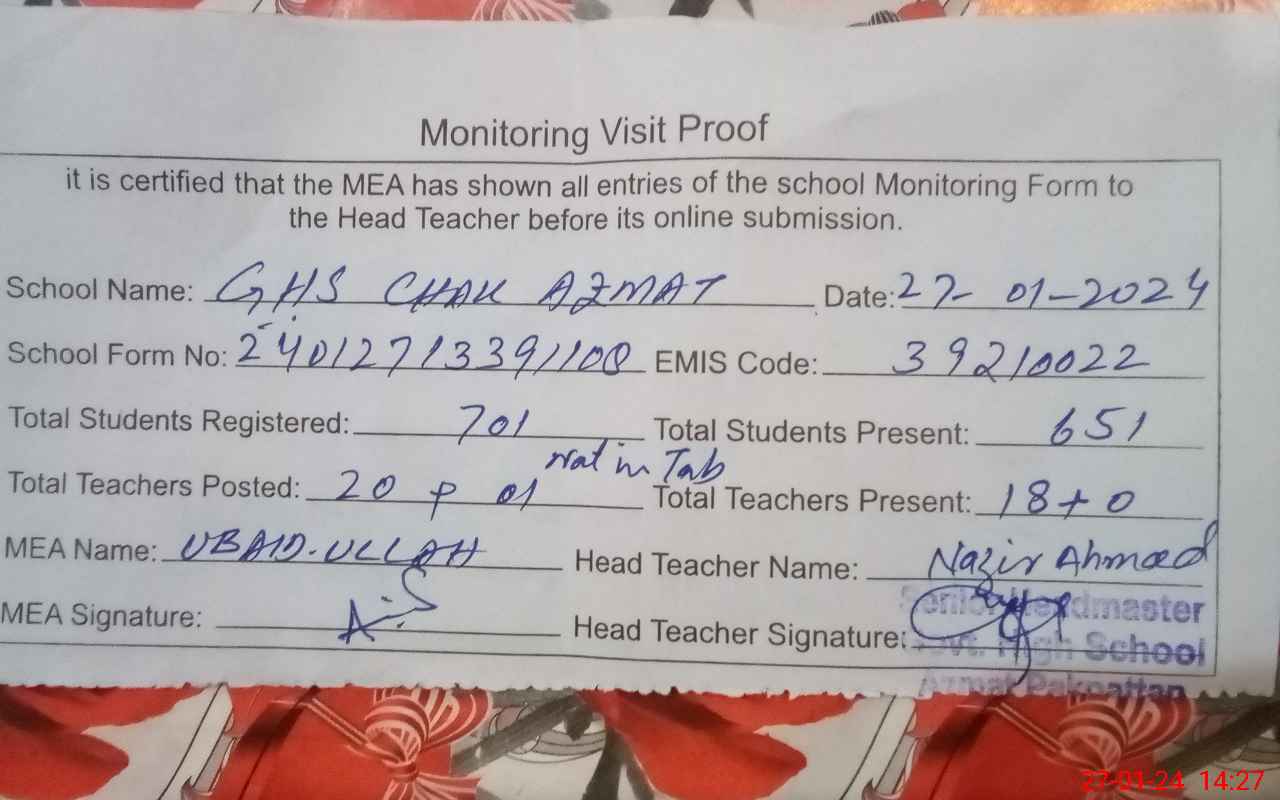 Monitoring Visit Proof
it is certified that the MEA has shown all entries of the school Monitoring Form to
the Head Teacher before its online submission.
School Name: GHS CHAK AZMAT Date: 27-01-2024
School Form No: 240127133911108 EMIS Code: 39210022
Total Students Registered: 701 Total Students Present: 651
not in Tab
Total Teachers Posted: 20 + 01 Total Teachers Present: 18+0
MEA Name: UBAID-ULLAH Head Teacher Name: Nazir Ahmad
MEA Signature: Head Teacher Signature:
Senior Headmaster
Govt. High School
Azmat Pakpattan
27-01-24 14:27